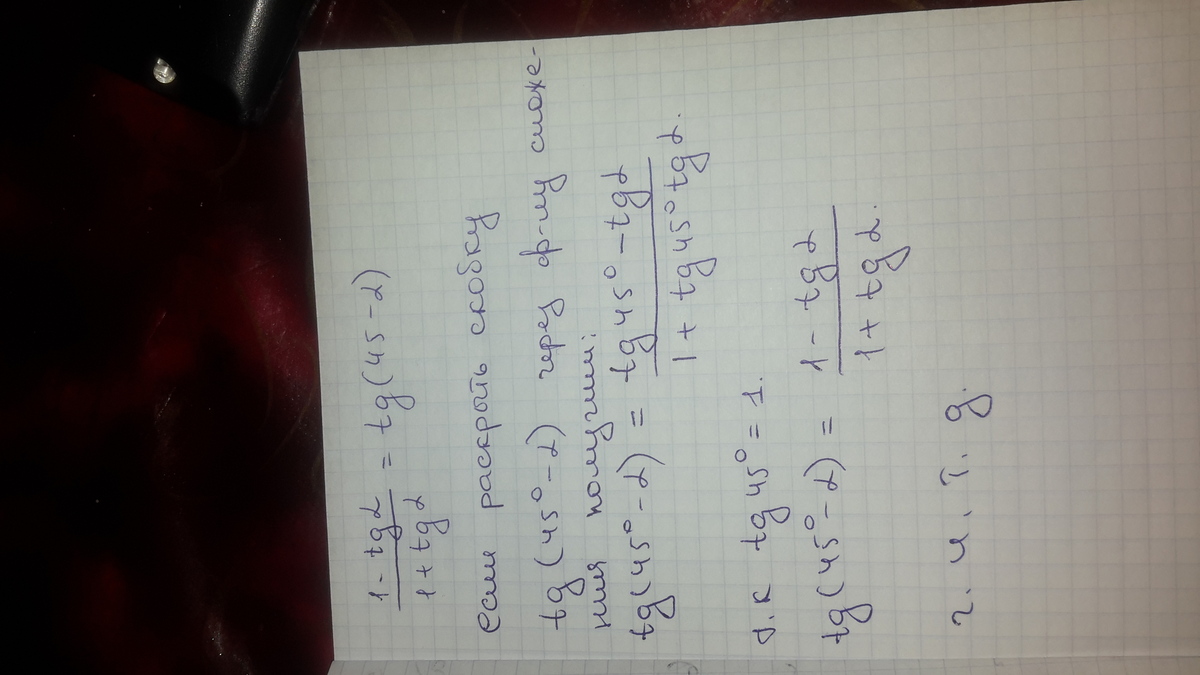 1 - tg α / 1 + tg α = tg (45 - α)
если раскрыть скобку
tg (45° - α) через ф-лу сложе-
ния получим:
tg (45° - α) = tg 45° - tg α / 1 + tg 45° tg α.
т.к tg 45° = 1.
tg (45° - α) = 1 - tg α / 1 + tg α.
ч. и. т. д.